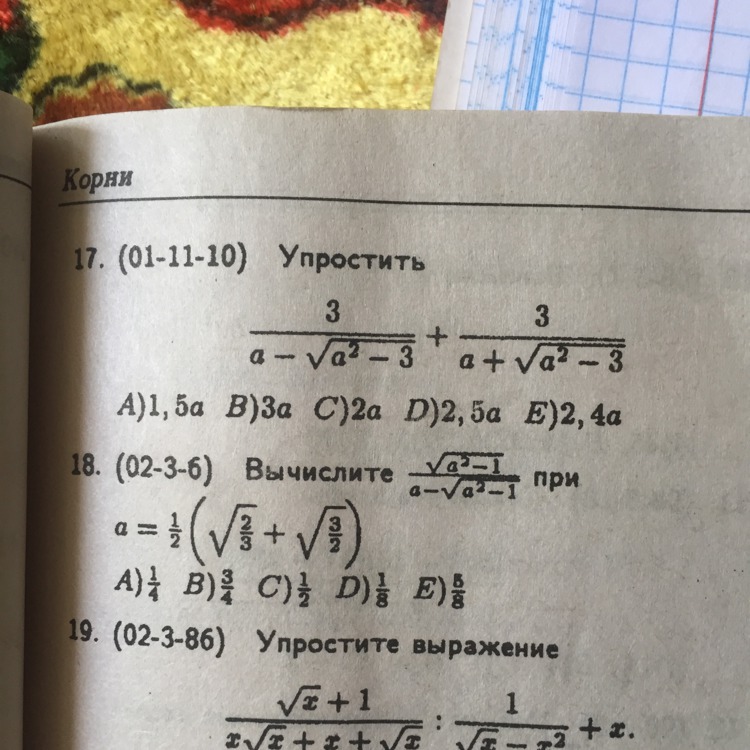 Корни
17. (01-11-10) Упростить
3/(a − √(a² − 3)) + 3/(a + √(a² − 3))
A)1,5a B)3a C)2a D)2,5a E)2,4a
18. (02-3-6) Вычислите √(a²−1)/(a−√(a²−1)) при
a = 1/2(√(2/3) + √(3/2))
A)1/4 B)3/4 C)1/2 D)1/8 E)5/8
19. (02-3-86) Упростите выражение
(√x + 1)/(x√x + x + √x) : 1/(√x − x²) + x.